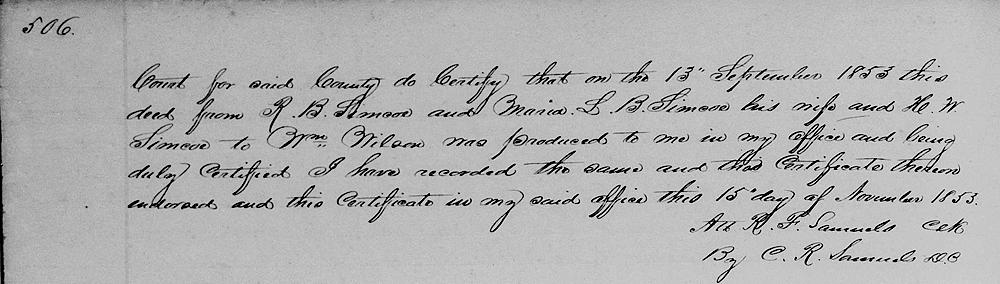 506.
Court for said County do Certify that on the 13" September 1853 this
deed from R. B. Simcoe and Maria. L. B. Simcoe his wife and H. W.
Simcoe to Wm. Wilson was produced to me in my office and being
duly Certified I have recorded the same and the Certificate thereon
endorsed and this Certificate in my said office this 15" day of November 1853.
Att R. F. Samuels Clk
By C. R. Samuels D.C